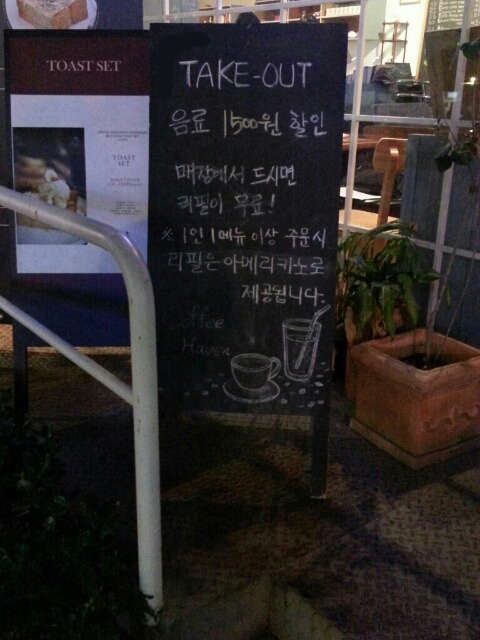 TOAST SET
TOAST
SET
TAKE-OUT
음료 1500원 할인
매장에서 드시면
리필이 무료!
※ 1인 1메뉴 이상 주문시
리필은 아메리카노로
제공됩니다.
offee
Haven